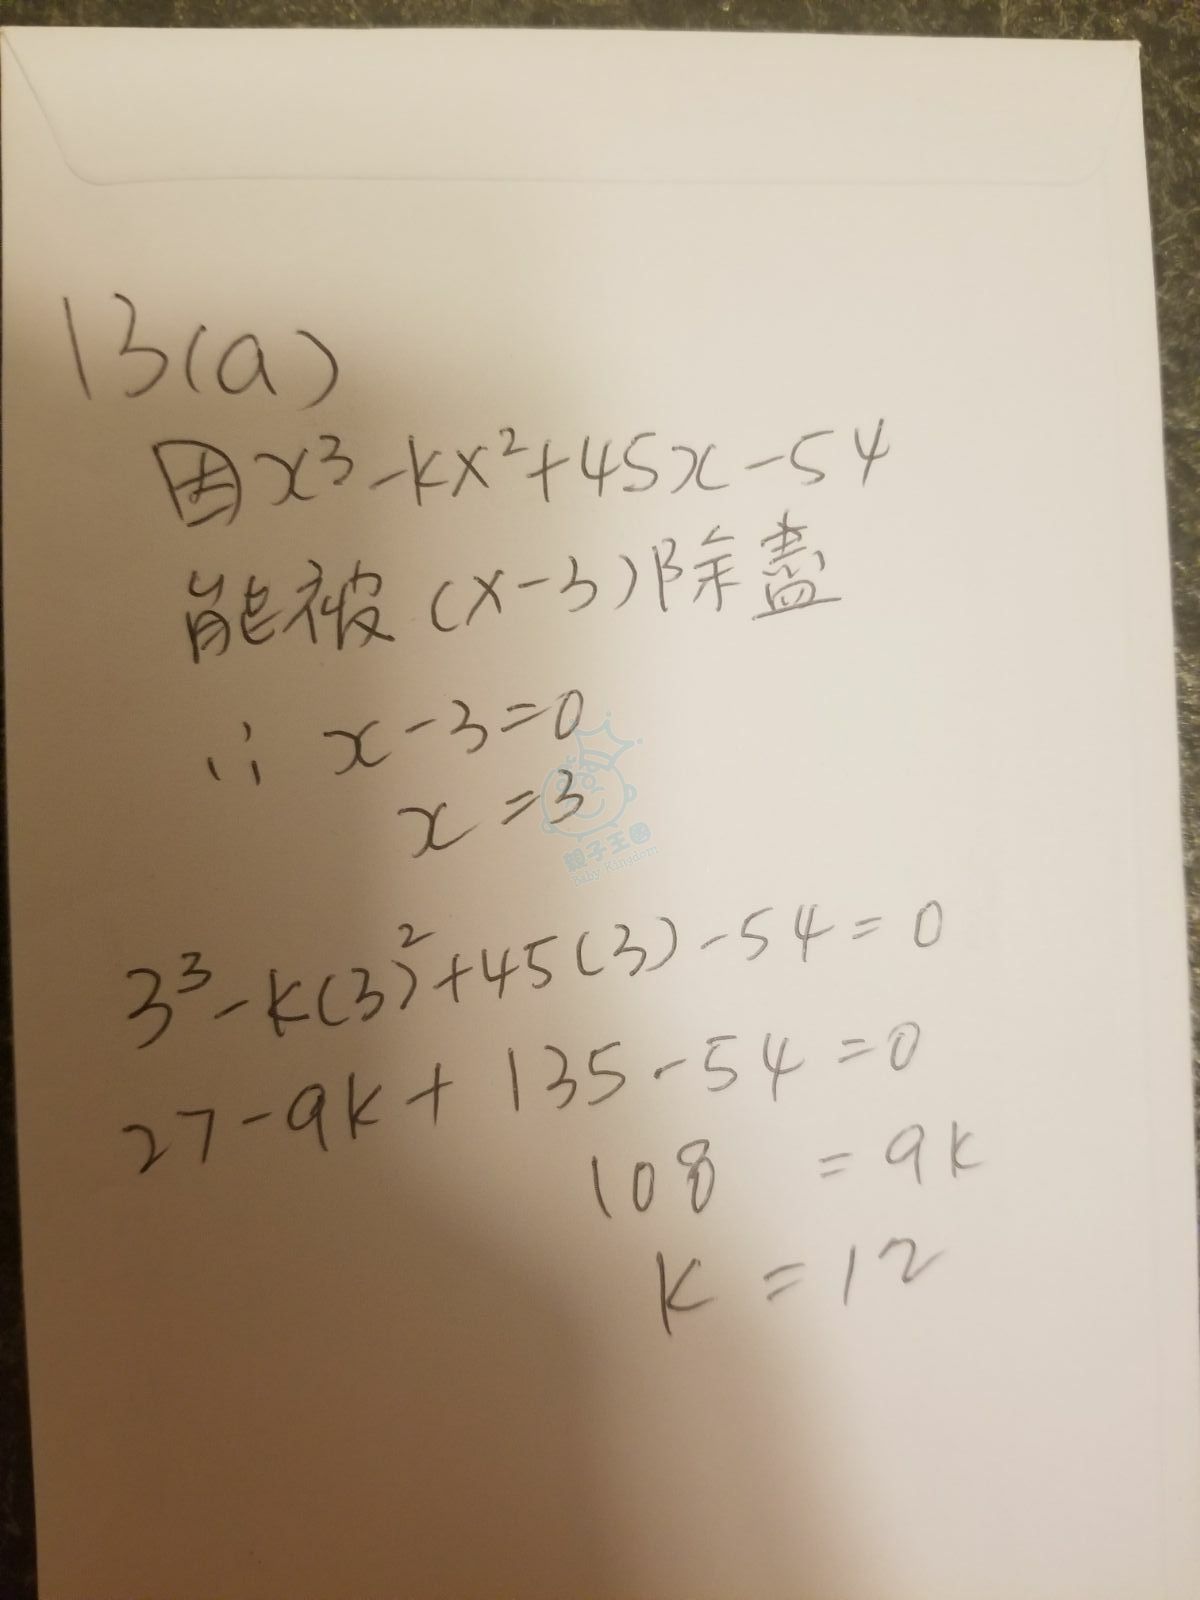 13(a)
因x³-kx²+45x-54
能被(x-3)除盡
∴ x-3=0
x=3
親子王國
Baby Kingdom
3³-k(3)²+45(3)-54=0
27-9k+135-54=0
108=9k
k=12